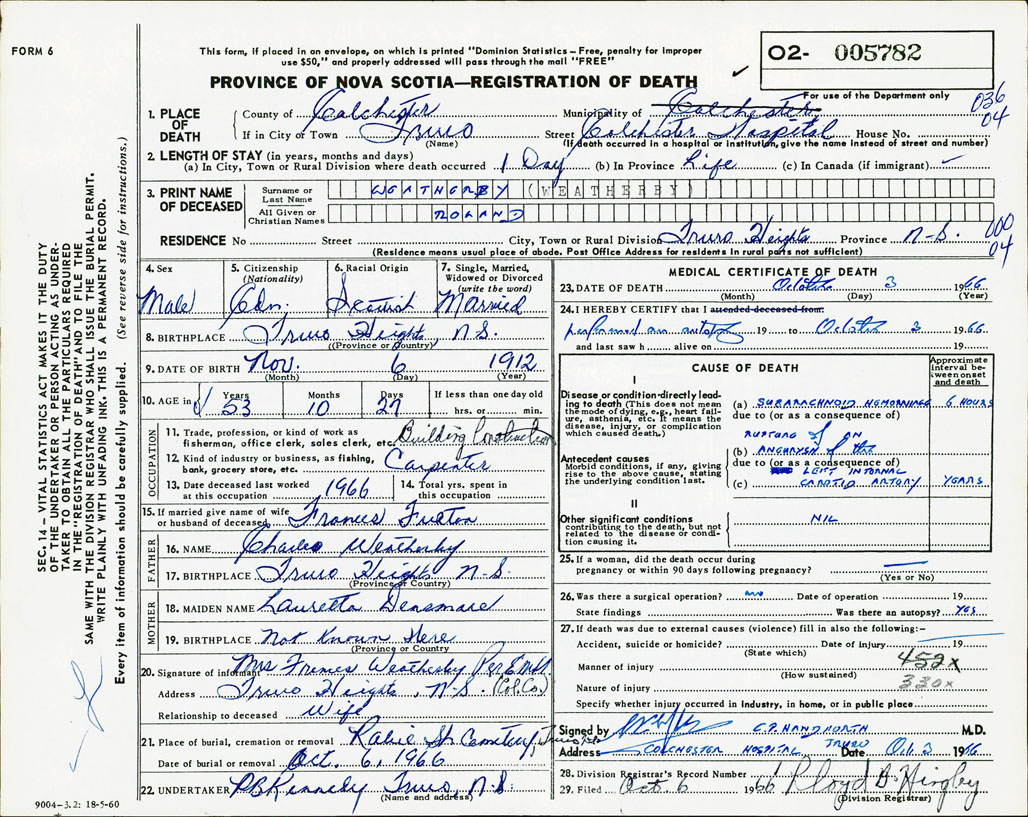 FORM 6
This form, if placed in an envelope, on which is printed "Dominion Statistics—Free, penalty for improper
use $50," and properly addressed will pass through the mail "FREE"
PROVINCE OF NOVA SCOTIA—REGISTRATION OF DEATH
02- 005782
For use of the Department only
036
04
1. PLACE OF DEATH
County of Colchester Municipality of Colchester
If in City or Town Truro Street Colchester Hospital House No.
(Name) (If death occurred in a hospital or institution, give the name instead of street and number)
2. LENGTH OF STAY (in years, months and days)
(a) In City, Town or Rural Division where death occurred 1 Day (b) In Province Life (c) In Canada (if immigrant)
3. PRINT NAME OF DECEASED
Surname or Last Name WEATHERBY (WEATHERBY)
All Given or Christian Names ROLAND
RESIDENCE No Street City, Town or Rural Division Truro Heights Province N-S.
000
04
(Residence means usual place of abode. Post Office Address for residents in rural parts not sufficient)
4. Sex Male
5. Citizenship (Nationality) Cdn.
6. Racial Origin Scottish
7. Single, Married, Widowed or Divorced (write the word) Married
8. BIRTHPLACE Truro Heights, N.S.
(Province or Country)
9. DATE OF BIRTH Nov. 6 1912
(Month) (Day) (Year)
10. AGE in Years 53 Months 10 Days 27 If less than one day old
hrs. or min.
OCCUPATION
11. Trade, profession, or kind of work as
fisherman, office clerk, sales clerk, etc. Building Construction
12. Kind of industry or business, as fishing,
bank, grocery store, etc. Carpenter
13. Date deceased last worked
at this occupation 1966
14. Total yrs. spent in
this occupation
15. If married give name of wife
or husband of deceased Frances Fulton
FATHER
16. NAME Charles Weatherby
17. BIRTHPLACE Truro Heights N-S.
(Province or Country)
MOTHER
18. MAIDEN NAME Lauretta Densmore
19. BIRTHPLACE Not Known Here
(Province or Country)
20. Signature of informant Mrs Frances Weatherby Per
Address Truro Heights, N-S. (Col. Co.)
Relationship to deceased Wife
21. Place of burial, cremation or removal St Cemetery
Date of burial or removal Oct. 6, 1966
22. UNDERTAKER Truro, N.S.
(Name and address)
MEDICAL CERTIFICATE OF DEATH
23. DATE OF DEATH October 3 1966
(Month) (Day) (Year)
24. I HEREBY CERTIFY that I attended deceased from:
performed an autopsy 19 to October 3 1966.
and last saw h alive on 19
CAUSE OF DEATH
Approximate interval between onset and death
I
Disease or condition directly leading to death (This does not mean
the mode of dying, e.g., heart failure, asthenia, etc. It means the
disease, injury, or complication
which caused death.)
(a) SUBARACHNOID HEMORRHAGE 6 HOURS
due to (or as a consequence of)
RUPTURE of AN
Antecedent causes
Morbid conditions, if any, giving
rise to the above cause, stating the
underlying condition last.
(b) ANEURYSM of the
due to (or as a consequence of)
LEFT INTERNAL
(c) CAROTID ARTERY YEARS
II
Other significant conditions
contributing to the death, but not
related to the disease or condition causing it.
NIL
25. If a woman, did the death occur during
pregnancy or within 90 days following pregnancy?
(Yes or No)
26. Was there a surgical operation? no Date of operation 19
State findings Was there an autopsy? YES
27. If death was due to external causes (violence) fill in also the following:—
Accident, suicide or homicide? Date of injury 19
(State which)
Manner of injury 452X
(How sustained)
Nature of injury 330X
Specify whether injury occurred in industry, in home, or in public place
Signed by C.P. HANDFORTH M.D.
Address COLCHESTER HOSPITAL TRURO Date Oct. 3 1966
28. Division Registrar's Record Number
29. Filed Oct. 6 1966 Lloyd
(Division Registrar)
9004-3.2: 18-5-60
SEC. 14—VITAL STATISTICS ACT MAKES IT THE DUTY
OF THE UNDERTAKER OR PERSON ACTING AS UNDER-
TAKER TO OBTAIN ALL THE PARTICULARS REQUIRED
IN THE "REGISTRATION OF DEATH" AND TO FILE THE
SAME WITH THE DIVISION REGISTRAR WHO SHALL ISSUE THE BURIAL PERMIT.
WRITE PLAINLY WITH UNFADING INK. THIS IS A PERMANENT RECORD.
Every item of information should be carefully supplied. (See reverse side for instructions.)